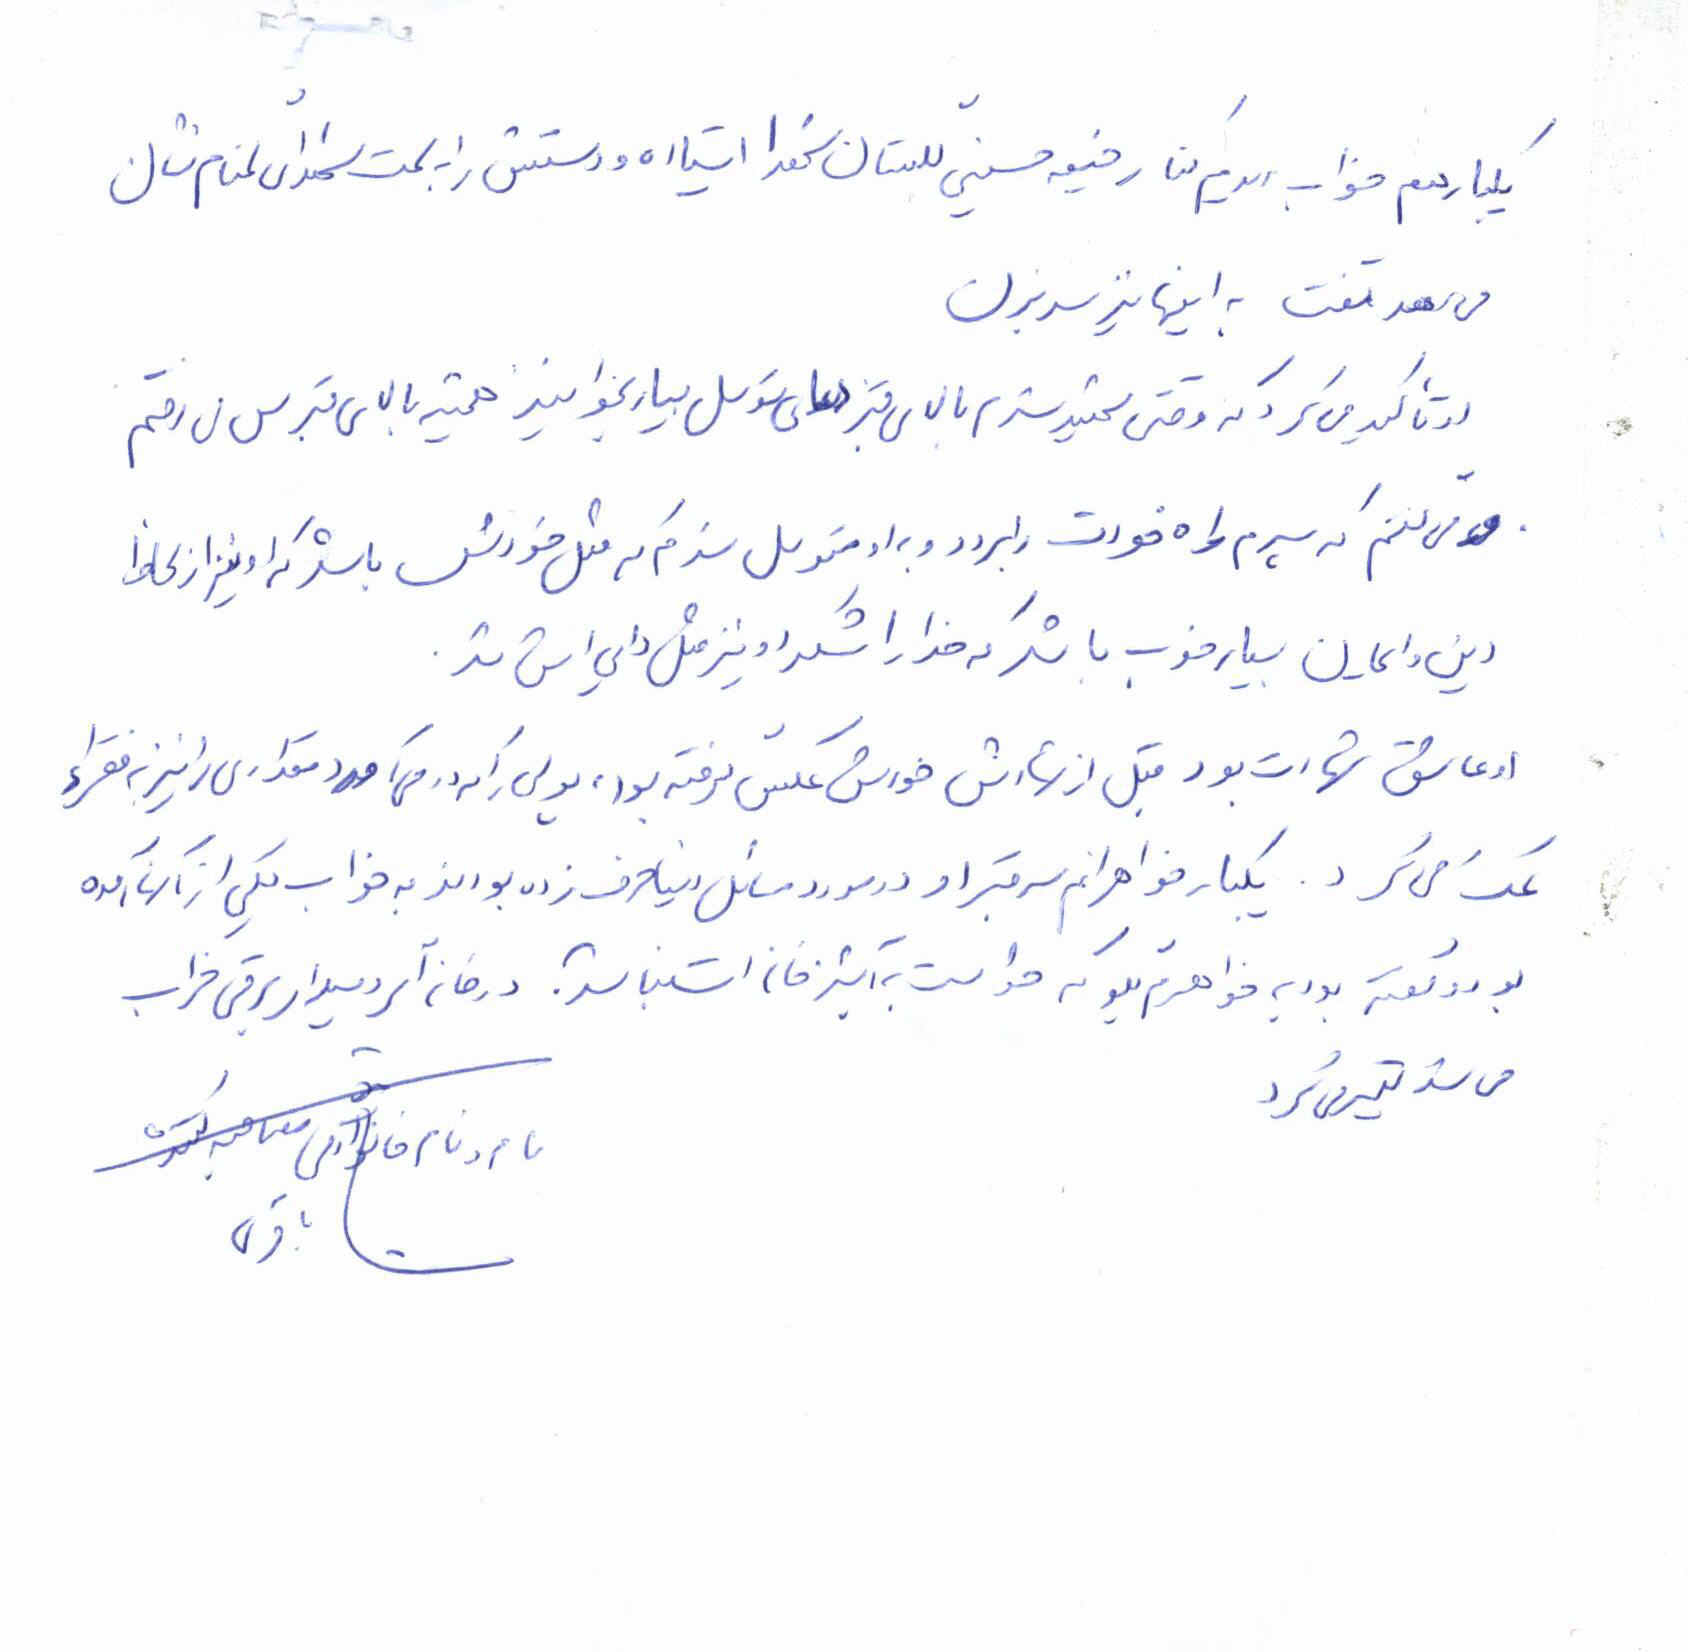 یکبار هم خواب دیدم کنار خیمه حسینی گلستان شهدا ایستاده و دستش را به سمت شهدای گمنام نشان
می دهد گفت به اینها نیز سر بزن
او تأکید می کرد که وقتی شهید شدم بالای قبرم دعای توسل بسیار بخوانید همیشه بالای قبرش می رفتم
و می گفتم که پسرم راه خودت را برود و به او متوسل شدم که مثل خودش باشد که او نیز از لحاظ
دین و ایمان بسیار خوب باشد که خدا را شکر او نیز مثل دایی اش شد.
او عاشق شهادت بود قبل از شهادتش خودش عکس گرفته بود، پولی را که در می آورد مقداری را نیز به فقراء
کمک می کرد. یکبار خواهرانم سر قبر او در مورد مسائل دنیا حرف زده بودند به خواب یکی از آنها آمده
بود و گفته بود به خواهرم بگو که حواست به آشپزخانه است نباشد. در خانه اگر وسیله برقی خراب
می شد تعمیر می کرد
نام و نام خانوادگی مصاحبه کننده
باقری